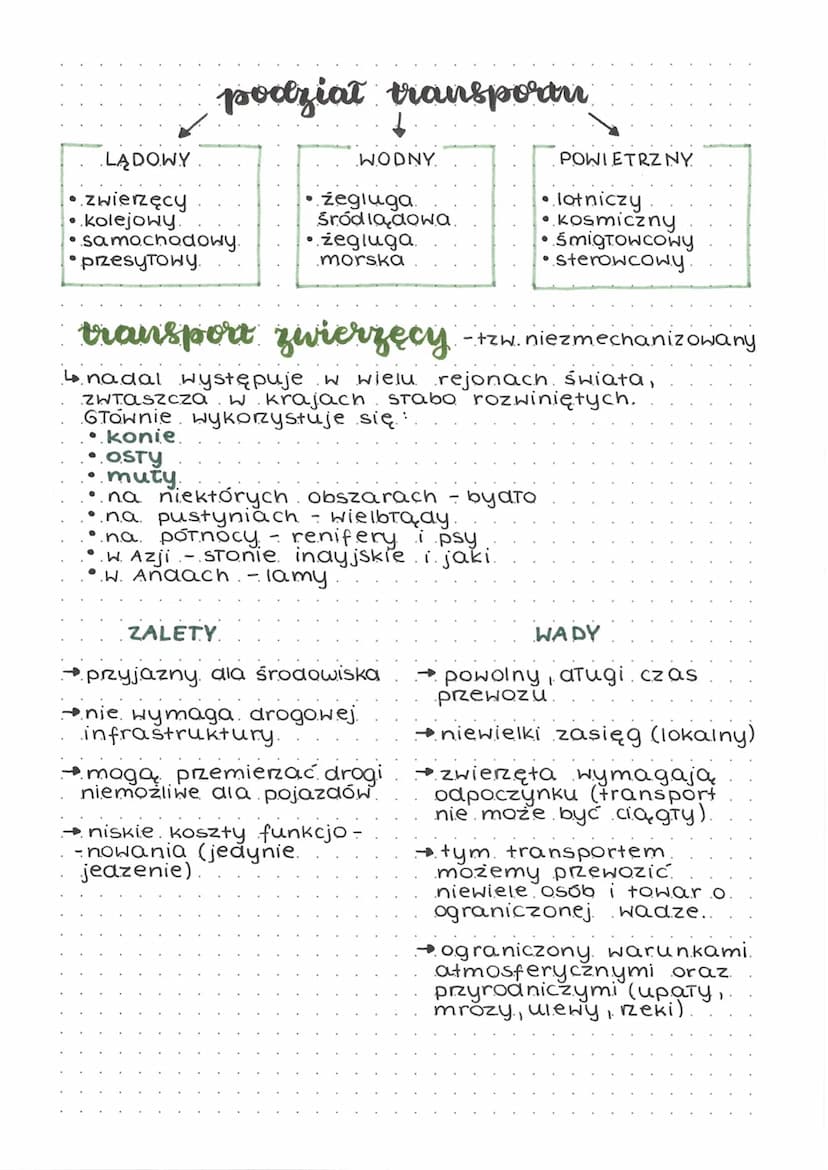 podział transportu
LĄDOWY
• zwierzęcy
• kolejowy
• samochodowy
• przesyłowy
WODNY
• żegluga
śródlądowa
• żegluga
morska
POWIETRZNY
• lotniczy
• kosmiczny
• śmigłowcowy
• sterowcowy
transport zwierzęcy - tzw. niezmechanizowany
↳ nadal występuje w wielu rejonach świata,
zwłaszcza w krajach słabo rozwiniętych.
Głównie wykorzystuje się:
• konie
• osły
• muły
• na niektórych obszarach - bydło
• na pustyniach - wielbłądy
• na północy - renifery i psy
• w Azji - słonie indyjskie i jaki
• w Andach - lamy
ZALETY
→ przyjazny dla środowiska
→ nie wymaga drogowej
infrastruktury
→ mogą przemierzać drogi
niemożliwe dla pojazdów
→ niskie koszty funkcjo-
-nowania (jedynie
jedzenie)
WADY
→ powolny, długi czas
przewozu
→ niewielki zasięg (lokalny)
→ zwierzęta wymagają
odpoczynku (transport
nie może być ciągły)
→ tym transportem
możemy przewozić
niewiele osób i towar o
ograniczonej wadze.
→ ograniczony warunkami
atmosferycznymi oraz
przyrodniczymi (upały,
mrozy, ulewy, rzeki)